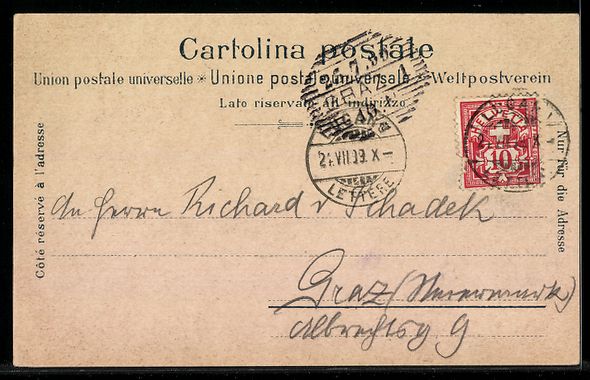 Cartolina postale
Union postale universelle * Unione postale universale * Weltpostverein
Lato riservato all'indirizzo
Côté réservé à l'adresse
Nur für die Adresse
HELVETIA
10
21.VII.99.X
LETTERE
GRAZ
An Herrn Richard v Schadek
Graz (Steiermark)
Albrechtsg 9